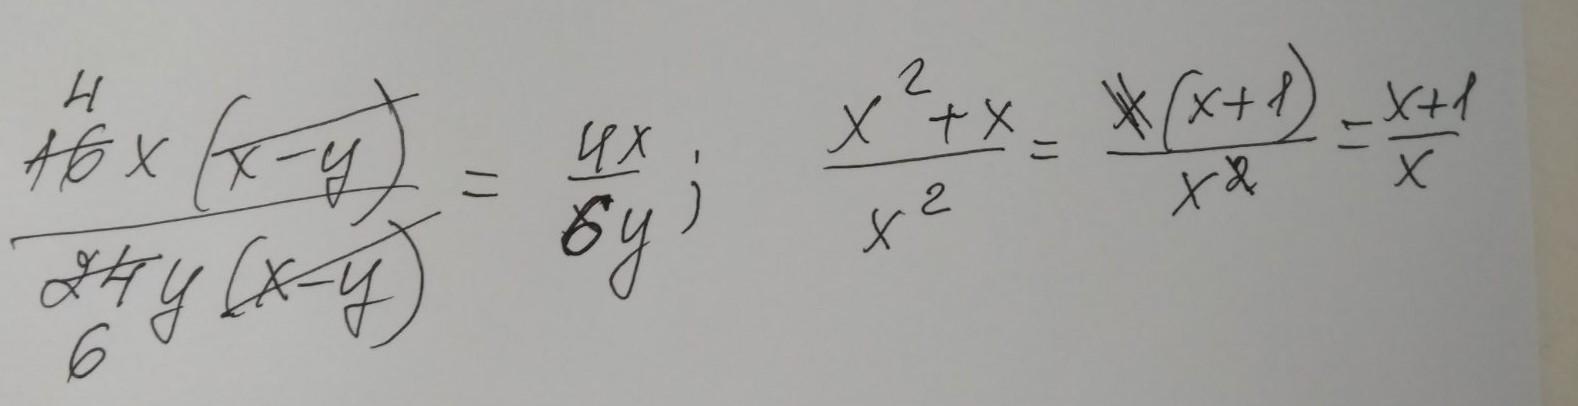 4
16x(x-y)/24y(x-y) = 4x/6y; x²+x/x² = x(x+1)/x² = x+1/x
6